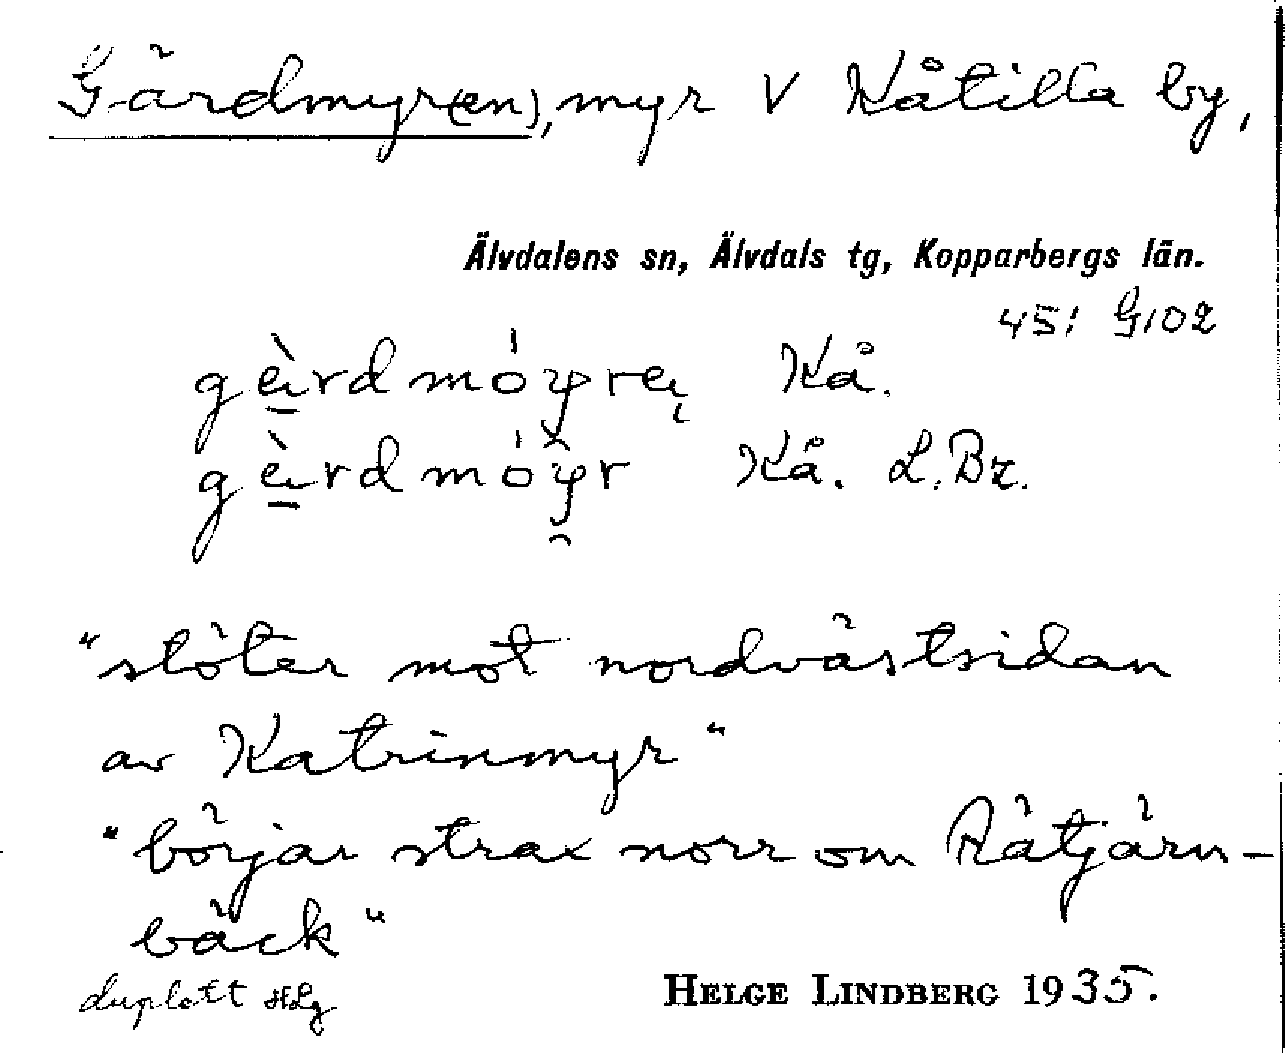 Gärdmyr(en), myr V Kåtilla by,
Älvdalens sn, Älvdals tg, Kopparbergs län.
451 G102
Kå.
Kå. L.Bz.
"stöter mot nordvästsidan
av Katrinmyr"
"börjar strax norr om Rätjärn-
bäck"
duplett HLg
HELGE LINDBERG 1935.